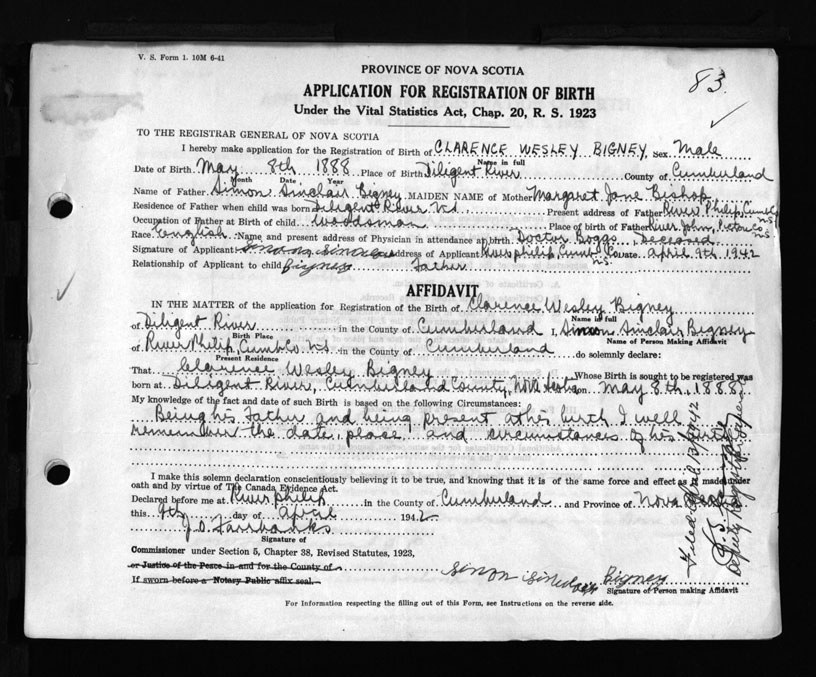 V. S. Form 1. 10M 6-41
83
PROVINCE OF NOVA SCOTIA
APPLICATION FOR REGISTRATION OF BIRTH
Under the Vital Statistics Act, Chap. 20, R. S. 1923
TO THE REGISTRAR GENERAL OF NOVA SCOTIA
I hereby make application for the Registration of Birth of CLARENCE WESLEY BIGNEY Sex Male
Name in full
Date of Birth May 8th 1888 Place of Birth Diligent River County of Cumberland
Month Date Year
Name of Father Simon Sinclair Bigney MAIDEN NAME of Mother Margaret Jane Bishop
Residence of Father when child was born Diligent River N.S. Present address of Father River Philip, Cumb. Co. N.S.
Occupation of Father at Birth of child Woodsman Place of birth of Father River John, Pictou Co. N.S.
Race English Name and present address of Physician in attendance at birth. Doctor Boggs, Deceased
Signature of Applicant Simon Sinclair Bigney Address of Applicant River philip Cumb. Co. N.S. Date April 9th 1942
Relationship of Applicant to child Father
AFFIDAVIT
IN THE MATTER of the application for Registration of the Birth of Clarence Wesley Bigney
Name in full
of Diligent River in the County of Cumberland I, Simon Sinclair Bigney
Birth Place Name of Person Making Affidavit
of River Philip, Cumb Co. N.S. in the County of Cumberland do solemnly declare:
Present Residence
That Clarence Wesley Bigney Whose Birth is sought to be registered was
born at Diligent River, Cumberland County, Nova Scotia on May 8th, 1888
My knowledge of the fact and date of such Birth is based on the following Circumstances:
Being his Father and being present at his birth I well
remember the date, place and circumstances of his birth
I make this solemn declaration conscientiously believing it to be true, and knowing that it is of the same force and effect as if made under
oath and by virtue of The Canada Evidence Act.
Declared before me at River Philip in the County of Cumberland and Province of Nova Scotia
this 9th day of April 1942
J. D. Fairbanks
Signature of
Commissioner under Section 5, Chapter 38, Revised Statutes, 1923,
or Justice of the Peace in and for the County of
If sworn before a Notary Public affix seal.
Simon Sinclair Bigney
Signature of Person making Affidavit
For Information respecting the filling out of this Form, see Instructions on the reverse side.
Filed April 13/1942
Deputy Registrar General